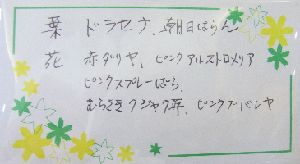 葉 ドラセナ、朝日はらん
花 赤ダリヤ、ピンクアルストロメリア
ピンクスプレーばら、
むらさきクジャク草、ピンク